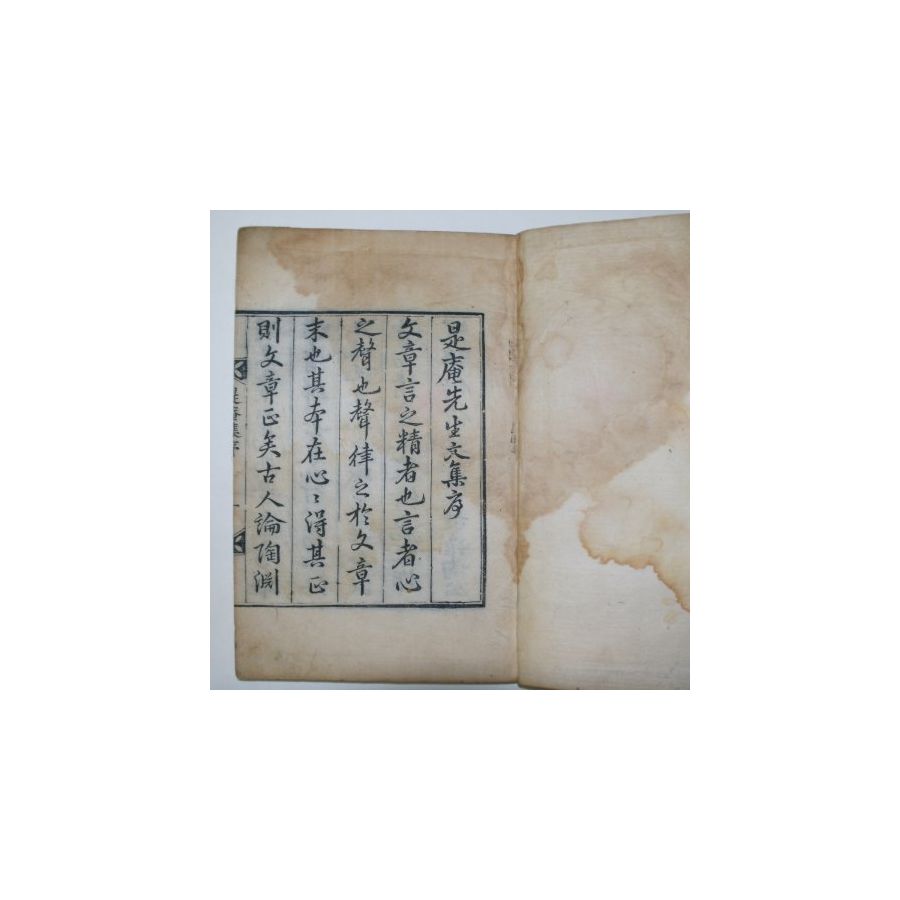 是庵先生文集序
文章言之精者也言者心
之聲也聲律之於文章
末也其本在心〻得其正
則文章正矣古人論陶淵
是庵集序